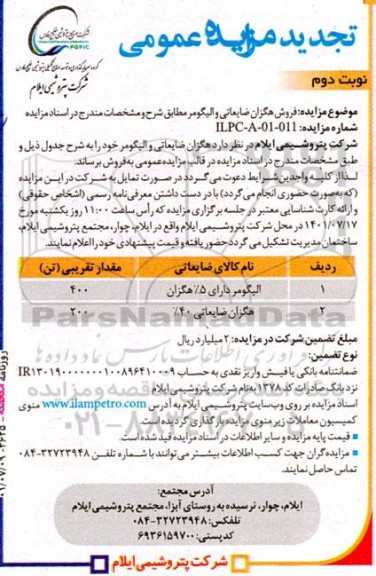 شرکت صنایع پتروشیمی خلیج فارس
PGPIC
شرکت پتروشیمی ایلام
تجدید مزایده عمومی
نوبت دوم
موضوع مزایده: فروش هگزان ضایعاتی و الیگومر مطابق شرح و مشخصات مندرج در اسناد مزایده
شماره مزایده: ILPC-A-01-011
شرکت پتروشیمی ایلام در نظر دارد هگزان ضایعاتی و الیگومر خود را به شرح جدول ذیل و
طبق مشخصات مندرج در اسناد مزایده در قالب مزایده عمومی به فروش برساند.
لذا از کلیه واجدین شرایط دعوت می گردد در صورت تمایل به شرکت در این مزایده
(که به صورت حضوری انجام می گردد) با در دست داشتن معرفی نامه رسمی (اشخاص حقوقی)
و ارائه کارت شناسایی معتبر در جلسه برگزاری مزایده که رأس ساعت ۱۱:۰۰ روز یکشنبه مورخ
۱۴۰۱/۰۷/۱۷ در محل شرکت پتروشیمی ایلام واقع در ایلام، چوار، مجتمع پتروشیمی ایلام،
ساختمان مدیریت تشکیل می گردد حضور یافته و قیمت پیشنهادی خود را اعلام نمایند.
ردیف نام کالای ضایعاتی مقدار تقریبی (تن)
۱ الیگومر دارای ۵٪ هگزان ۴۰۰
۲ هگزان ضایعاتی ۴۰٪ ۲۰۰
ParsNamadData
مبلغ تضمین شرکت در مزایده: ۲ میلیارد ریال
نوع تضمین:
ضمانتنامه بانکی یا فیش واریز نقدی به حساب IR130190000000100896410009
نزد بانک صادرات کد ۱۳۷۸ به نام شرکت پتروشیمی ایلام
اسناد مزایده بر روی وب سایت پتروشیمی ایلام به آدرس www.ilampetro.com منوی
کمیسیون معاملات زیر منوی مزایده بارگذاری گردیده است.
• قیمت پایه مزایده و سایر اطلاعات در اسناد مزایده قید شده است.
• مزایده گران جهت کسب اطلاعات بیشتر می توانند با شماره تلفن ۳۲۷۲۳۹۴۸-۰۸۴
تماس حاصل نمایند.
آدرس مجتمع:
ایلام، چوار، نرسیده به روستای آبزا، مجتمع پتروشیمی ایلام
تلفکس: ۳۲۷۲۳۹۴۸-۰۸۴
کدپستی: ۶۹۳۶۱۵۹۷۰۰
شرکت پتروشیمی ایلام